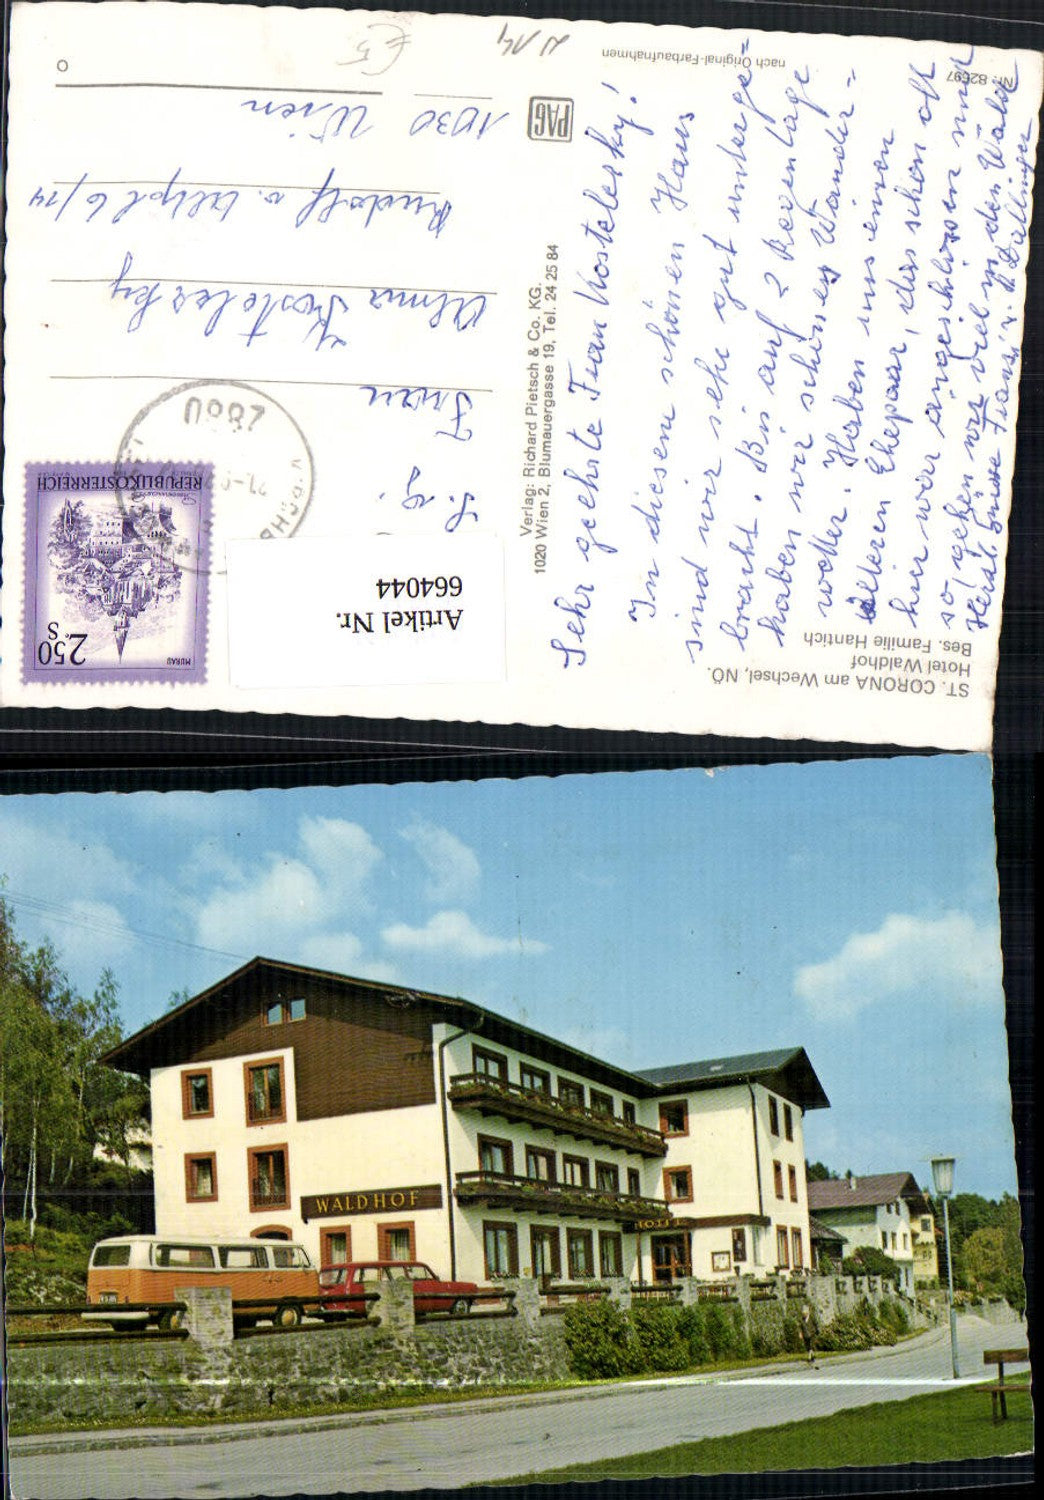 ST. CORONA am Wechsel, NÖ.
Hotel Waldhof
Bes. Familie Hantich
Sehr geehrte Frau Kostelesky!
In diesem schönen Haus
sind wir sehr gut unterge=
bracht. Bis auf 2 Regentage
haben wir schönes Wander-
wetter. Haben uns einen
älteren Ehepaar, das schon oft
hier war angeschlossen und
so gehen wir viel in den Wald
Herzl. Grüsse
Verlag: Richard Pietsch & Co. KG.
1020 Wien 2, Blumauergasse 19, Tel. 24 25 84
PAG
nach Original-Farbaufnahmen
Nr. 82697
REPUBLIK ÖSTERREICH
2.50 S
MURAU
2880
Artikel Nr.
664044
Frau
Alma Kostelesky
Rudolf v. 6/14
1030 Wien
WALDHOF
HOTEL